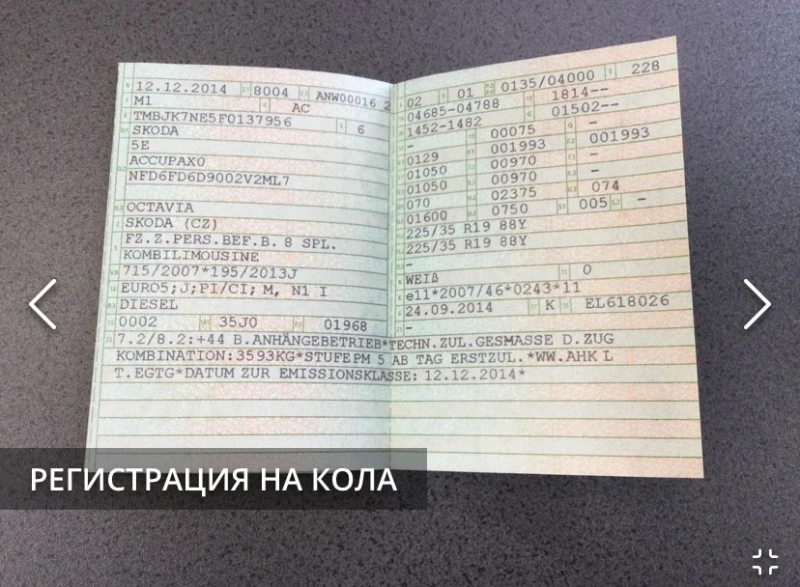 12.12.2014 8004 ANW00016 2
M1 AC
TMBJK7NE5F0137956 6
SKODA
5E
ACCUPAX0
NFD6FD6D9002V2ML7
OCTAVIA
SKODA (CZ)
FZ.Z.PERS.BEF.B. 8 SPL.
KOMBILIMOUSINE
715/2007*195/2013J
EURO5;J;PI/CI; M, N1 I
DIESEL
0002 35J0 01968
02 01 0135/04000 228
04685-04788 1814--
1452-1482 01502--
- 00075 -
0129 001993 001993
01050 00970 -
01050 00970 -
070 02375 074
01600 0750 005 -
225/35 R19 88Y
225/35 R19 88Y
-
WEIß 0
e11*2007/46*0243*11
24.09.2014 K EL618026
-
7.2/8.2:+44 B.ANHÄNGEBETRIEB*TECHN.ZUL.GESMASSE D.ZUG
KOMBINATION:3593KG*STUFE PM 5 AB TAG ERSTZUL.*WW.AHK L
T.EGTG*DATUM ZUR EMISSIONSKLASSE: 12.12.2014*
РЕГИСТРАЦИЯ НА КОЛА